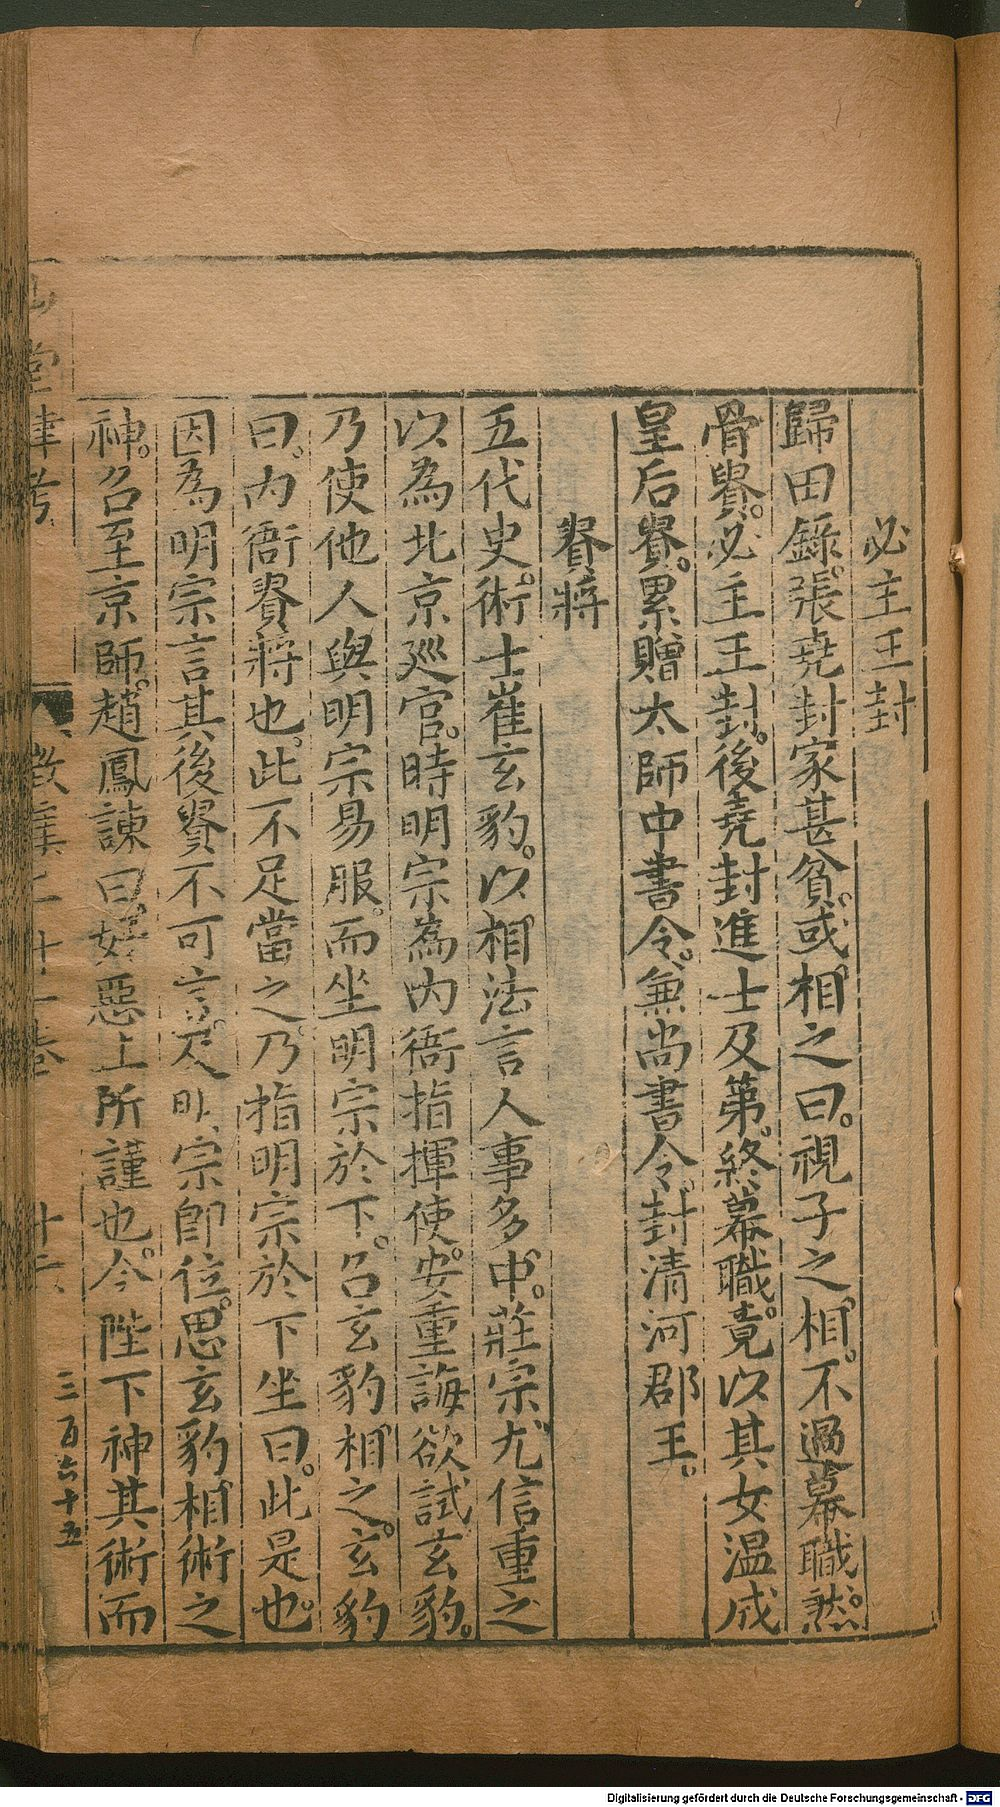 必主王封
歸田錄。張堯封家甚貧。或相之曰。視子之相。不過幕職。然
骨貴。必主王封。後堯封進士及第。終幕職。竟以其女温成
皇后貴。累贈太師中書令。兼尚書令。封清河郡王。
貴將
五代史。術士崔玄豹。以相法言人事多中。莊宗尤信重之
以為北京廵官。時明宗為内衙指揮使。安重誨欲試玄豹。
乃使他人與明宗易服。而坐明宗於下。召玄豹相之。玄豹
曰。内衙貴將也。此不足當之。乃指明宗於下坐曰。此是也。
因為明宗言其後貴不可言。及明宗即位。思玄豹相術之
神。召至京師。趙鳳諫曰。好惡上所謹也。今陛下神其術而
山堂肆考
徵集二十一卷
十二
三百六十五
Digitalisierung gefördert durch die Deutsche Forschungsgemeinschaft - DFG